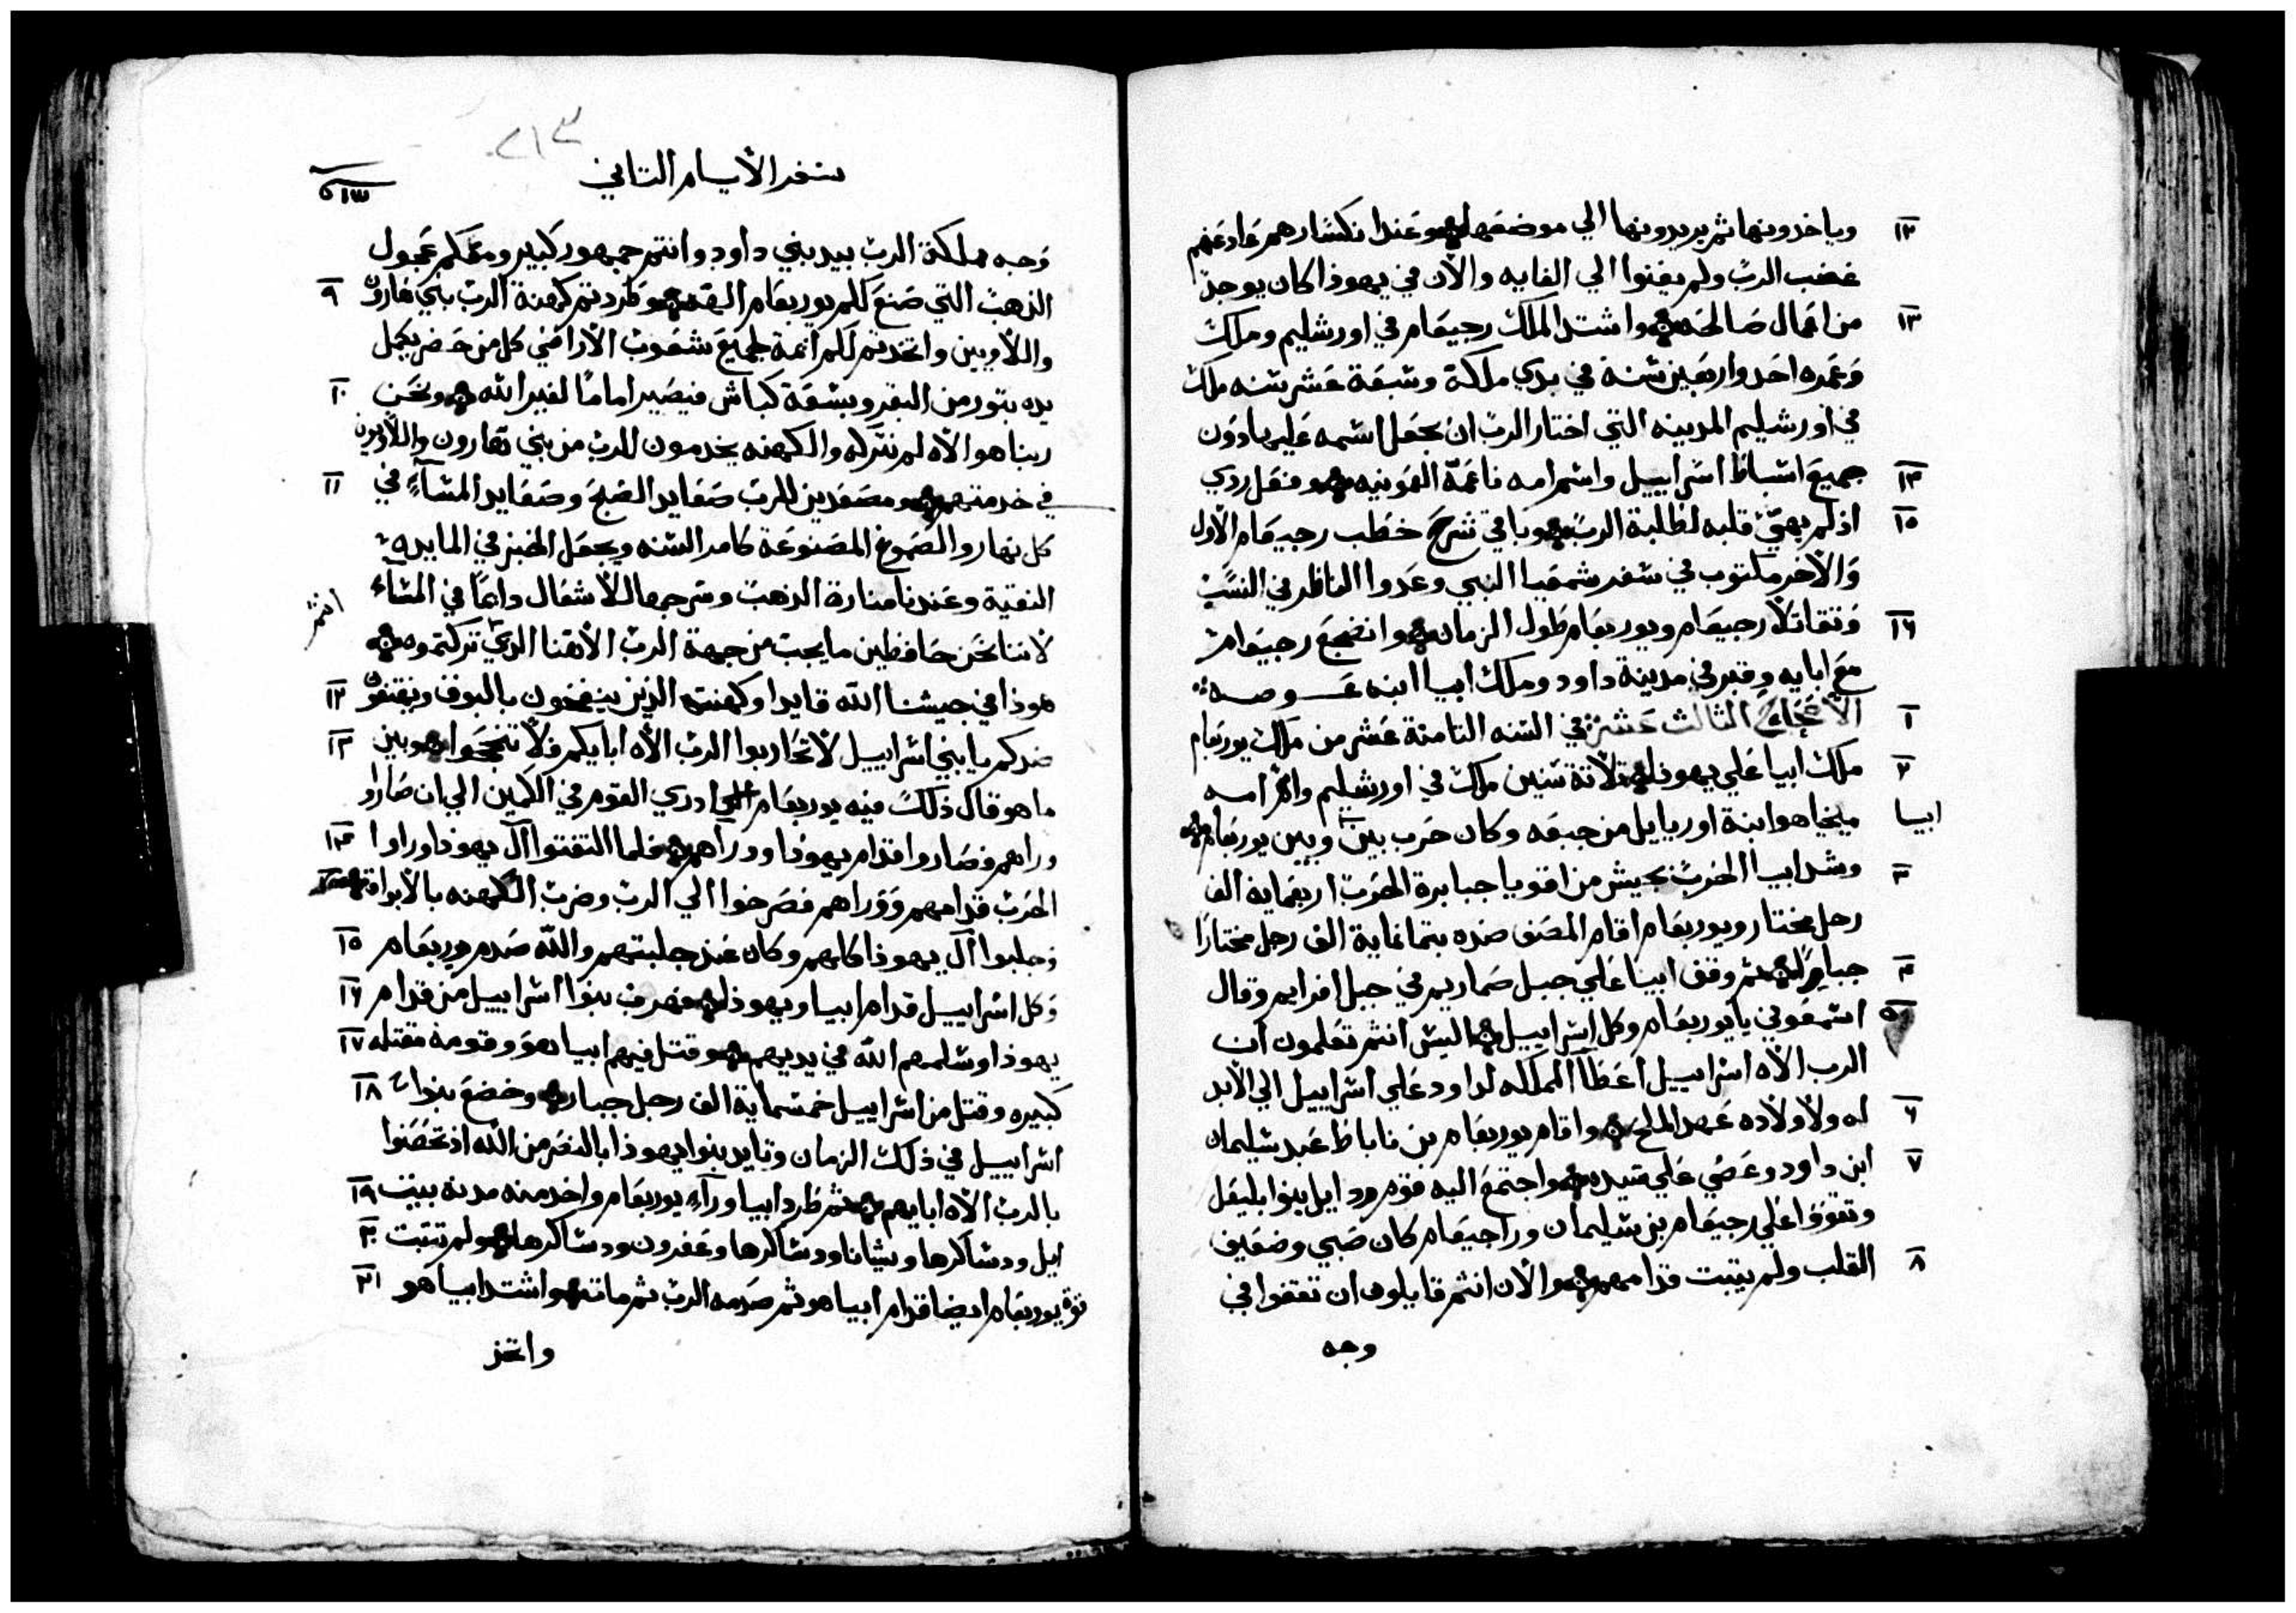 وياخدونها ثم يريدونها الي موضعها وعند انكسارهم عاد عنهم ١٢
غضب الرب ولم يفنوا الي الغايه والان في يهوذا كان يوجد
من اعمال صالحه واشتد الملك رحبعام في اورشليم وملك ١٣
وعمره احد واربعين سنه في بدي ملكة وسبعة عشر سنه ملك
في اورشليم المدينه التي اختار الرب ان يجعل اسمه عليها دون
جميع اسباط اسراييل واسم امه ناعمة العمونيه وفعل ردي ١٤
اذ لم يهيئ قلبه لطلبة الرب وباقي شرح خطب رحبعام الاول ١٥
والاخر مكتوب في سفر شمعيا النبي وعدوا الناظر في النسب
وتقاتلا رحبعام ويوربعام طول الزمان وانضجع رحبعام ١٦
مع ابايه وقبر في مدينة داود وملك ابيا ابنه عوضه
الاصحاح الثالث عشر في السنه الثامنة عشر من ملك يوربعام ١
ملك ابيا علي يهوذا ثلاثة سنين ملك في اورشليم واسم امه ٢
ابيا
ميخيا هو ابنة اورياييل من جبعه وكان حرب بين وبين يوربعام
وشد ابيا الحرب بجيش من اقويا جبابرة الحرب اربعماية الف ٣
رجل مختار ويوربعام اقام المصف ضده بثمانماية الف رجل مختارا
جبابره ثم وقف ابيا علي جبل صماريم في جبل افرايم وقال ٤
اسمعوني يا يوربعام وكل اسراييل اليس انتم تعلمون ان ٥
الرب الاه اسراييل اعطا المملكه لداود علي اسراييل الي الابد
له ولاولاده عهد الملح واقام يوربعام بن ناباط عبد سليمان ٦
ابن داود وعصي علي سيده واجتمع اليه قوم ردايل بنوا بليعل ٧
وتقووا علي رحبعام بن سليمان وراحبعام كان صبي وضعيف
القلب ولم يثبت قدامهم والان انتم قايلون ان تقفوا في ٨
وجه
٢١٣
سفر الايام الثاني
وجه مملكة الرب بيد بني داود وانتم جمهور كبير ومعكم عجول
الذهب التي صنع لكم يوربعام الهه وطردتم كهنة الرب بني هارون ٩
واللاويين واتخدتم لكم ايمة لجميع شعوب الاراضي كل من حضر يكمل
يده بتور من البقر وبسبعة كباش فيصير اماما لغير الله ونحن ١٠
ربنا هو الاه لم نتركه والكهنه يخدمون للرب من بني هارون واللاويين
في خدمتهم ومصعدين للرب صعايد الصبح وصعايد المساء في ١١
كل نهار والصموغ المصنوعة كامر السنه ويجعل الخبز في المايده
النقية وعندنا منارة الذهب وسرجها للاشعال دايما في المساء
انتم
لاننا نحن حافظين ما يجب من جهة الرب الاهنا الذي تركتموه
هوذا في جيشنا الله قايدا وكهنته الذين ينفخون بالبوق ويهتفون ١٢
ضدكم يا بني اسراييل لا تحاربوا الرب الاه ابايكم فلا تنجحوا وبين ١٣
ما هو قال ذلك فيه يوربعام ادري القوم في الكمين الي ان صاروا
وراهم فصاروا قدام يهوذا ووراهم فلما التفتوا آل يهوذا وراوا ١٤
الحرب قدامهم ووراهم فصرخوا الي الرب وضرب الكهنه بالابواق
وجلبوا آل يهوذا كلهم وكان عند جلبتهم والله صدم يوربعام ١٥
وكل اسراييل قدام ابيا ويهوذا فهرب بنوا اسراييل من قدام ١٦
يهوذا وسلمهم الله في يديهم وقتل فيهم ابيا هو وقومه مقتله ١٧
كبيره وقتل من اسراييل خمسماية الف رجل جبار وخضع بنوا ١٨
اسراييل في ذلك الزمان وتايد بنوا يهوذا بالنصر من الله اذ تحصنوا
بالرب الاه ابايهم ثم طرد ابيا وراء يوربعام واخد منه مدنه بيت ١٩
ايل ودساكرها ويشانا ودساكرها وعفرون ودساكرها ولم تثبت ٢٠
قوة يوربعام ايضا قدام ابيا هو ثم صدمه الرب ثم مات واشتد ابيا هو ٢١
واتخذ